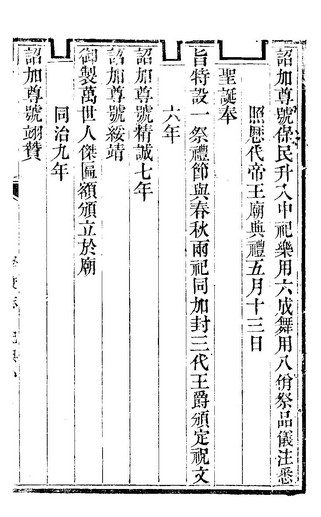 詔加尊號保民升入中祀樂用六成舞用八佾祭品儀注悉
照歷代帝王廟典禮五月十三日
聖誕奉
旨特設一祭禮節與春秋兩祀同加封三代王爵頒定祝文
六年
詔加尊號精誠七年
詔加尊號綏靖
御製萬世人傑匾額頒立於廟
同治九年
詔加尊號翊贊